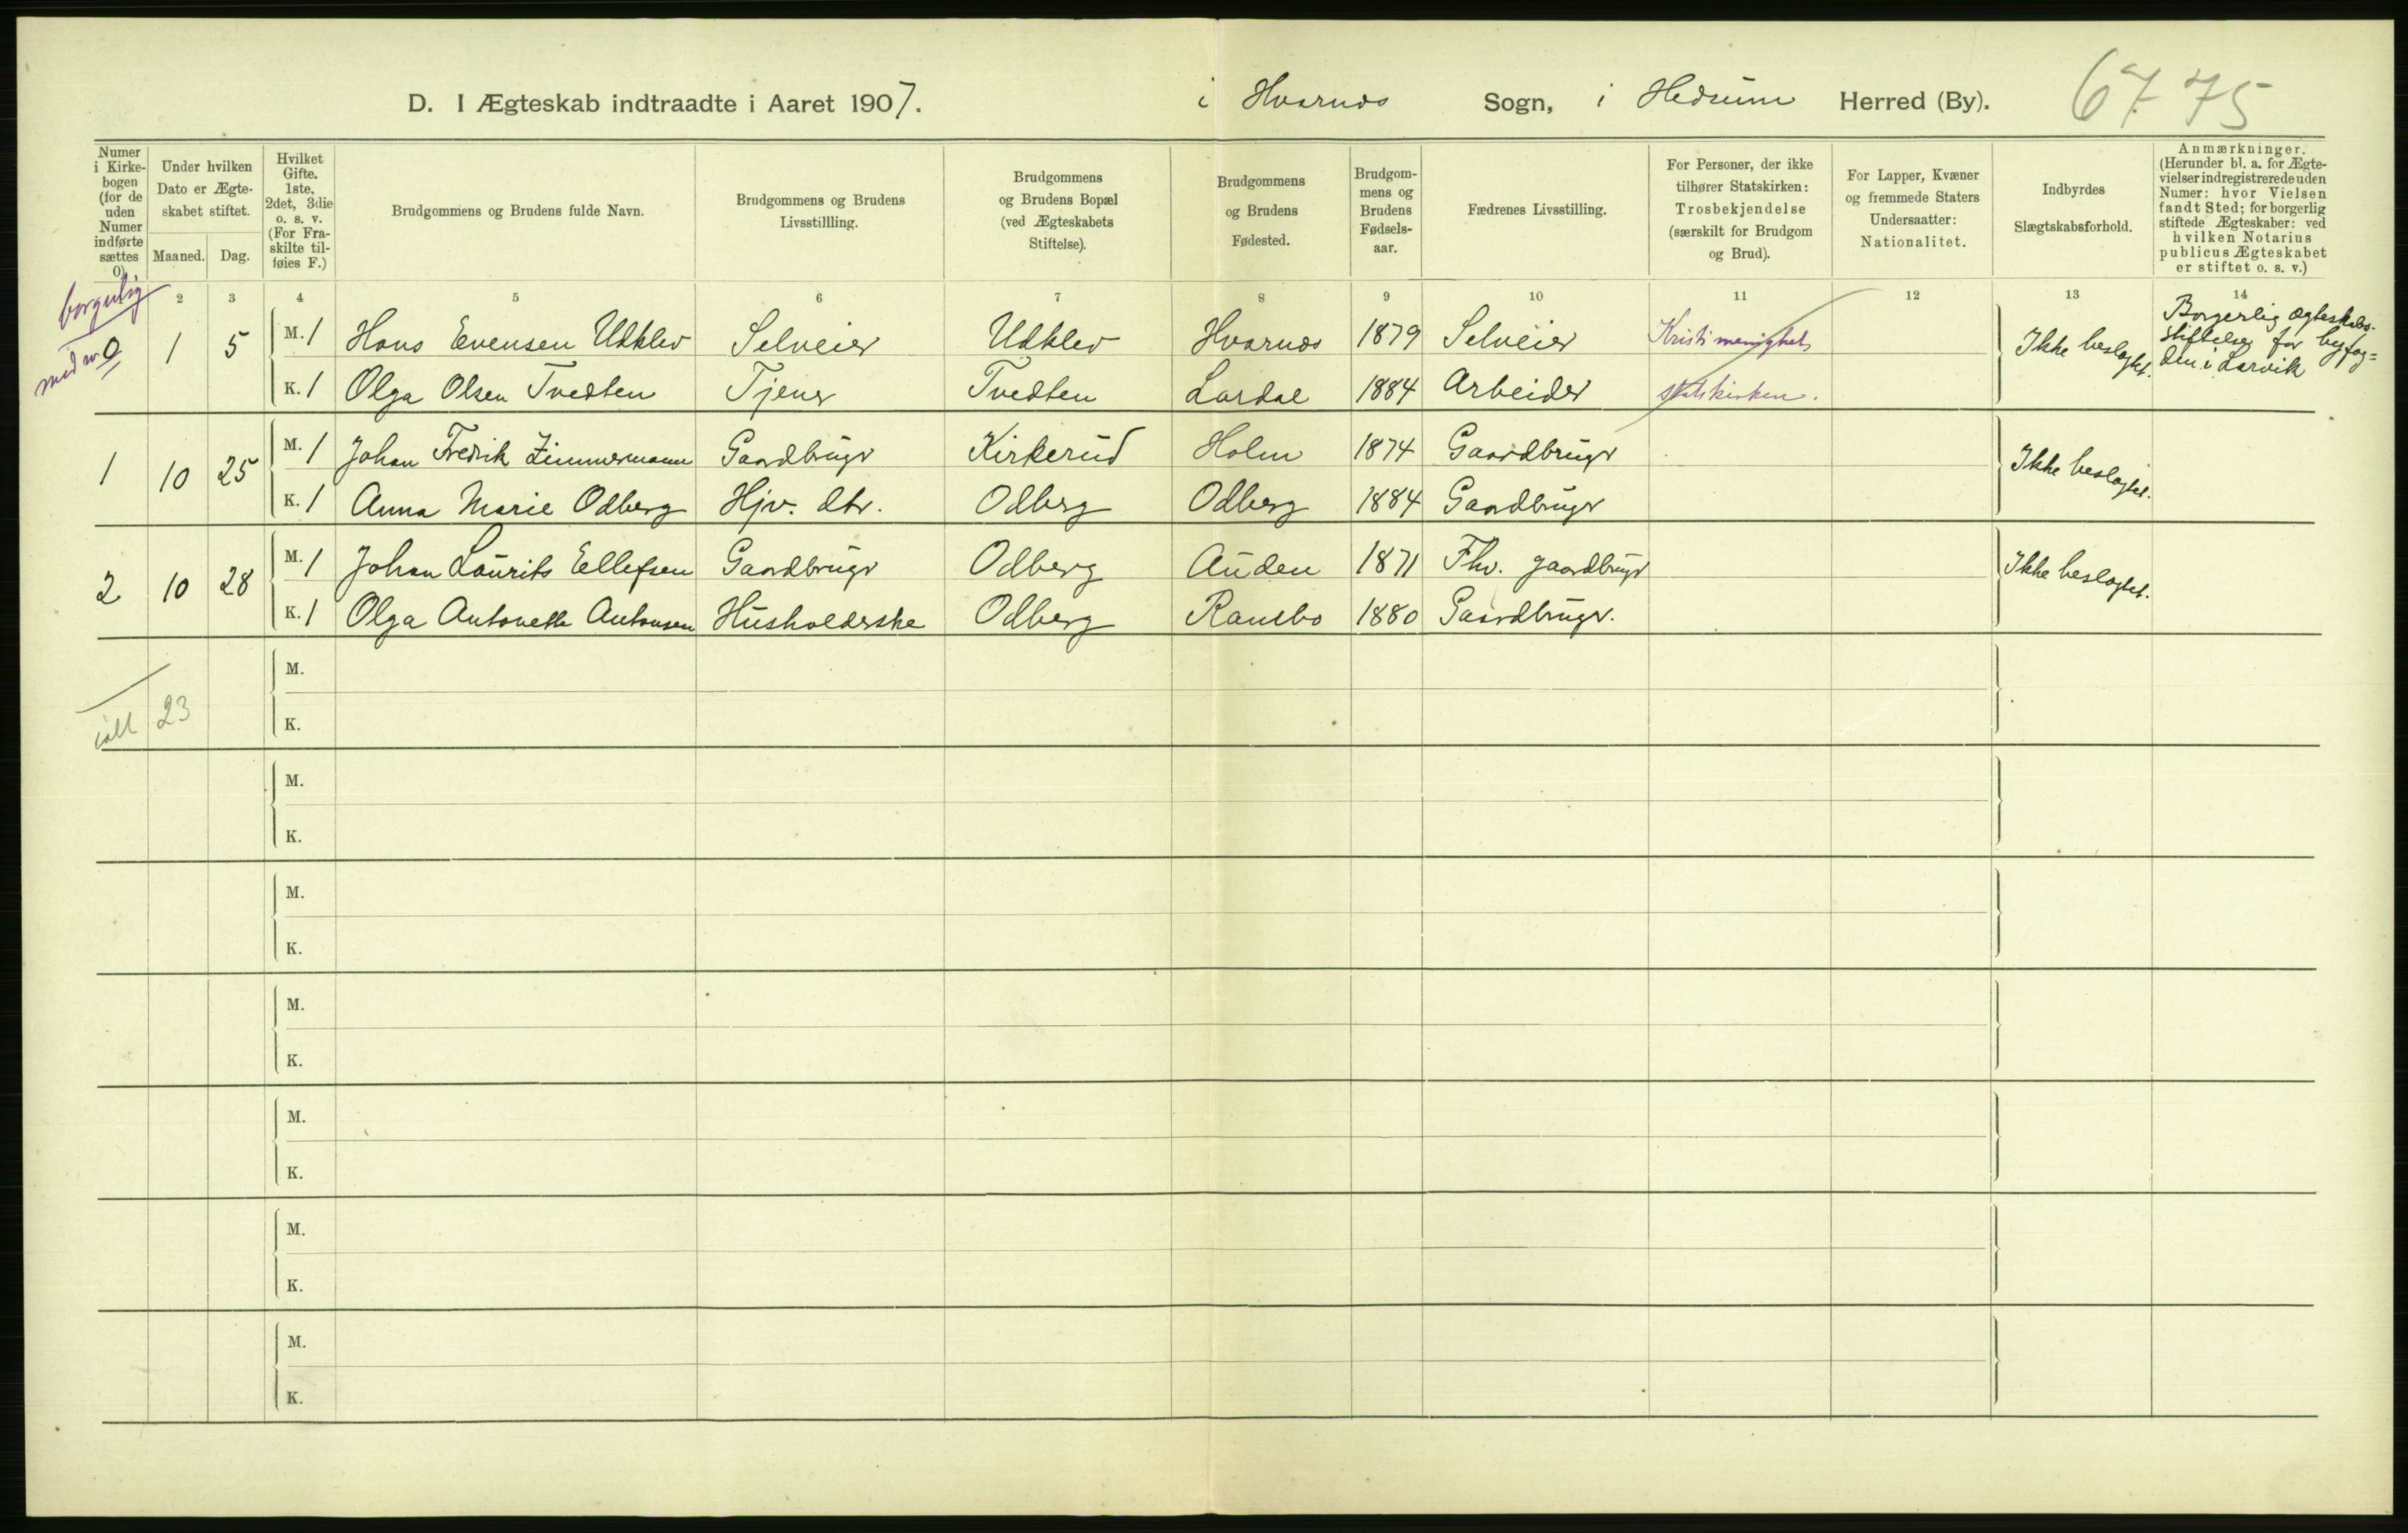 D. I Ægteskab indtraadte i Aaret 1907. i Hvarnæs Sogn, i Hedrum Herred (By).
67 75
Numer i Kirkebogen (for de uden Numer indførte sættes 0).
Under hvilken Dato er Ægteskabet stiftet.
Maaned. Dag.
Hvilket Gifte. 1ste, 2det, 3die o. s. v. (For Fraskilte tilføies F.)
Brudgommens og Brudens fulde Navn.
Brudgommens og Brudens Livsstillling.
Brudgommens og Brudens Bopæl (ved Ægteskabets Stiftelse).
Brudgommens og Brudens Fødested.
Brudgommens og Brudens Fødselsaar.
Fædrenes Livsstilling.
For Personer, der ikke tilhører Statskirken: Trosbekjendelse (særskilt for Brudgom og Brud).
For Lapper, Kvæner og fremmede Staters Undersaatter: Nationalitet.
Indbyrdes Slægtskabsforhold.
Anmærkninger. (Herunder bl. a. for Ægtevielser indregistrerede uden Numer: hvor Vielsen fandt Sted; for borgerlig stiftede Ægteskaber: ved hvilken Notarius publicus Ægteskabet er stiftet o. s. v.)
2 3 4 5 6 7 8 9 10 11 12 13 14
borgerlig
med nr 0 1 5 M. 1 Hans Evensen Udklev Selveier Udklev Hvarnæs 1879 Selveier Kristi menighet Ikke beslægtet. Borgerlig ægteskabs-
stiftelse for byfog=
den i Larvik
K. 1 Olga Olsen Tvedten Tjener Tvedten Lardal 1884 Arbeider statskirken.
1 10 25 M. 1 Johan Fredrik Zimmermann Gaardbruger Kirkerud Holm 1874 Gaardbruger Ikke beslægtet.
K. 1 Anna Marie Odberg Hjv. dtr. Odberg Odberg 1884 Gaardbruger
2 10 28 M. 1 Johan Laurits Ellefsen Gaardbruger Odberg Auden 1871 Fhv. gaardbruger Ikke beslægtet.
K. 1 Olga Antonette Antonsen Husholderske Odberg Ramsbo 1880 Gaardbruger.
M.
ialt 23
K.
M.
K.
M.
K.
M.
K.
M.
K.
M.
K.
M.
K.